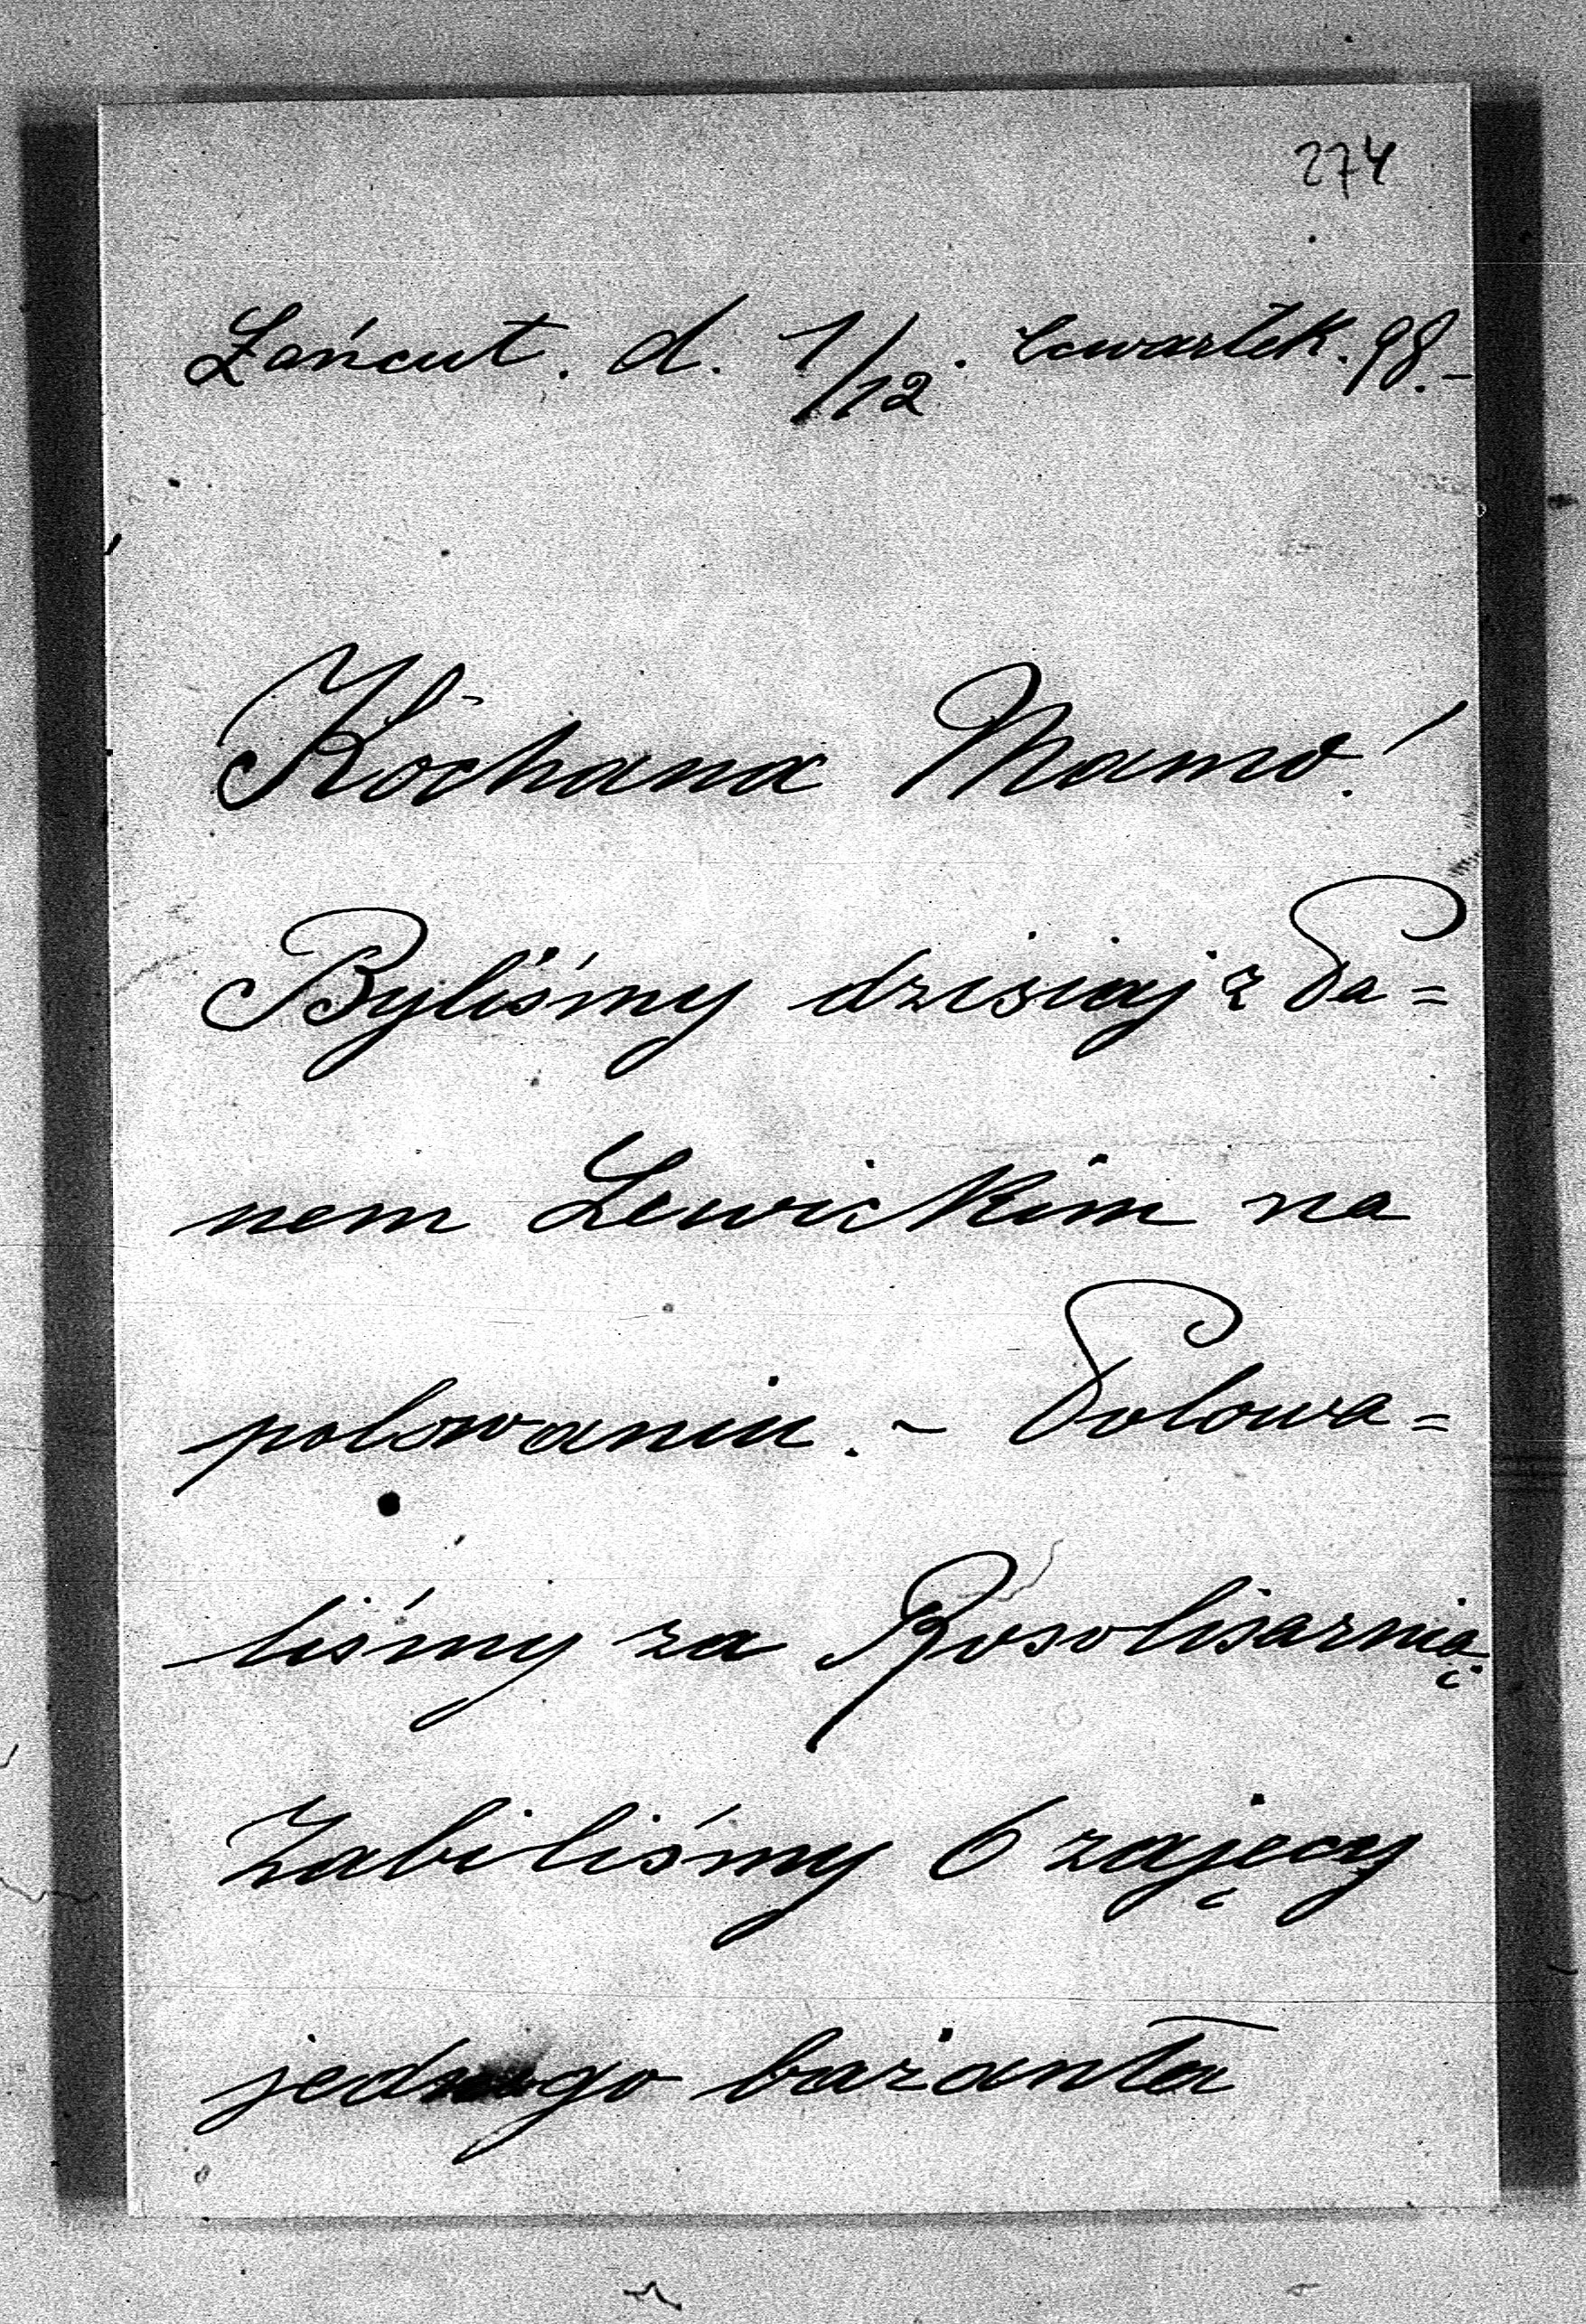 274
Łańcut. d. 1/12. Czwartek. 98.-
Kochana Mamo!
Byliśmy dzisiaj z Pa=
nem Lewickim na
polowaniu. - Polowa=
liśmy za Rosolisarnią.
Zabiliśmy 6 zajęcy
jednego bażanta